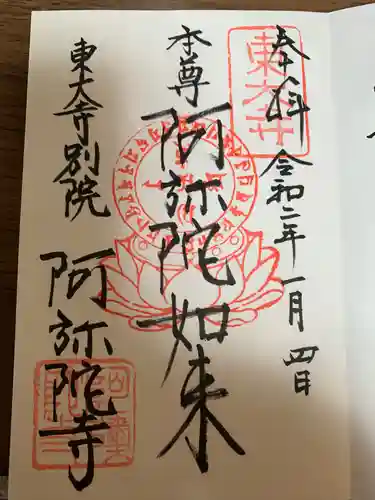 奉拝
令和二年一月四日
東大寺
本尊
阿弥陀如来
東大寺別院
阿弥陀寺